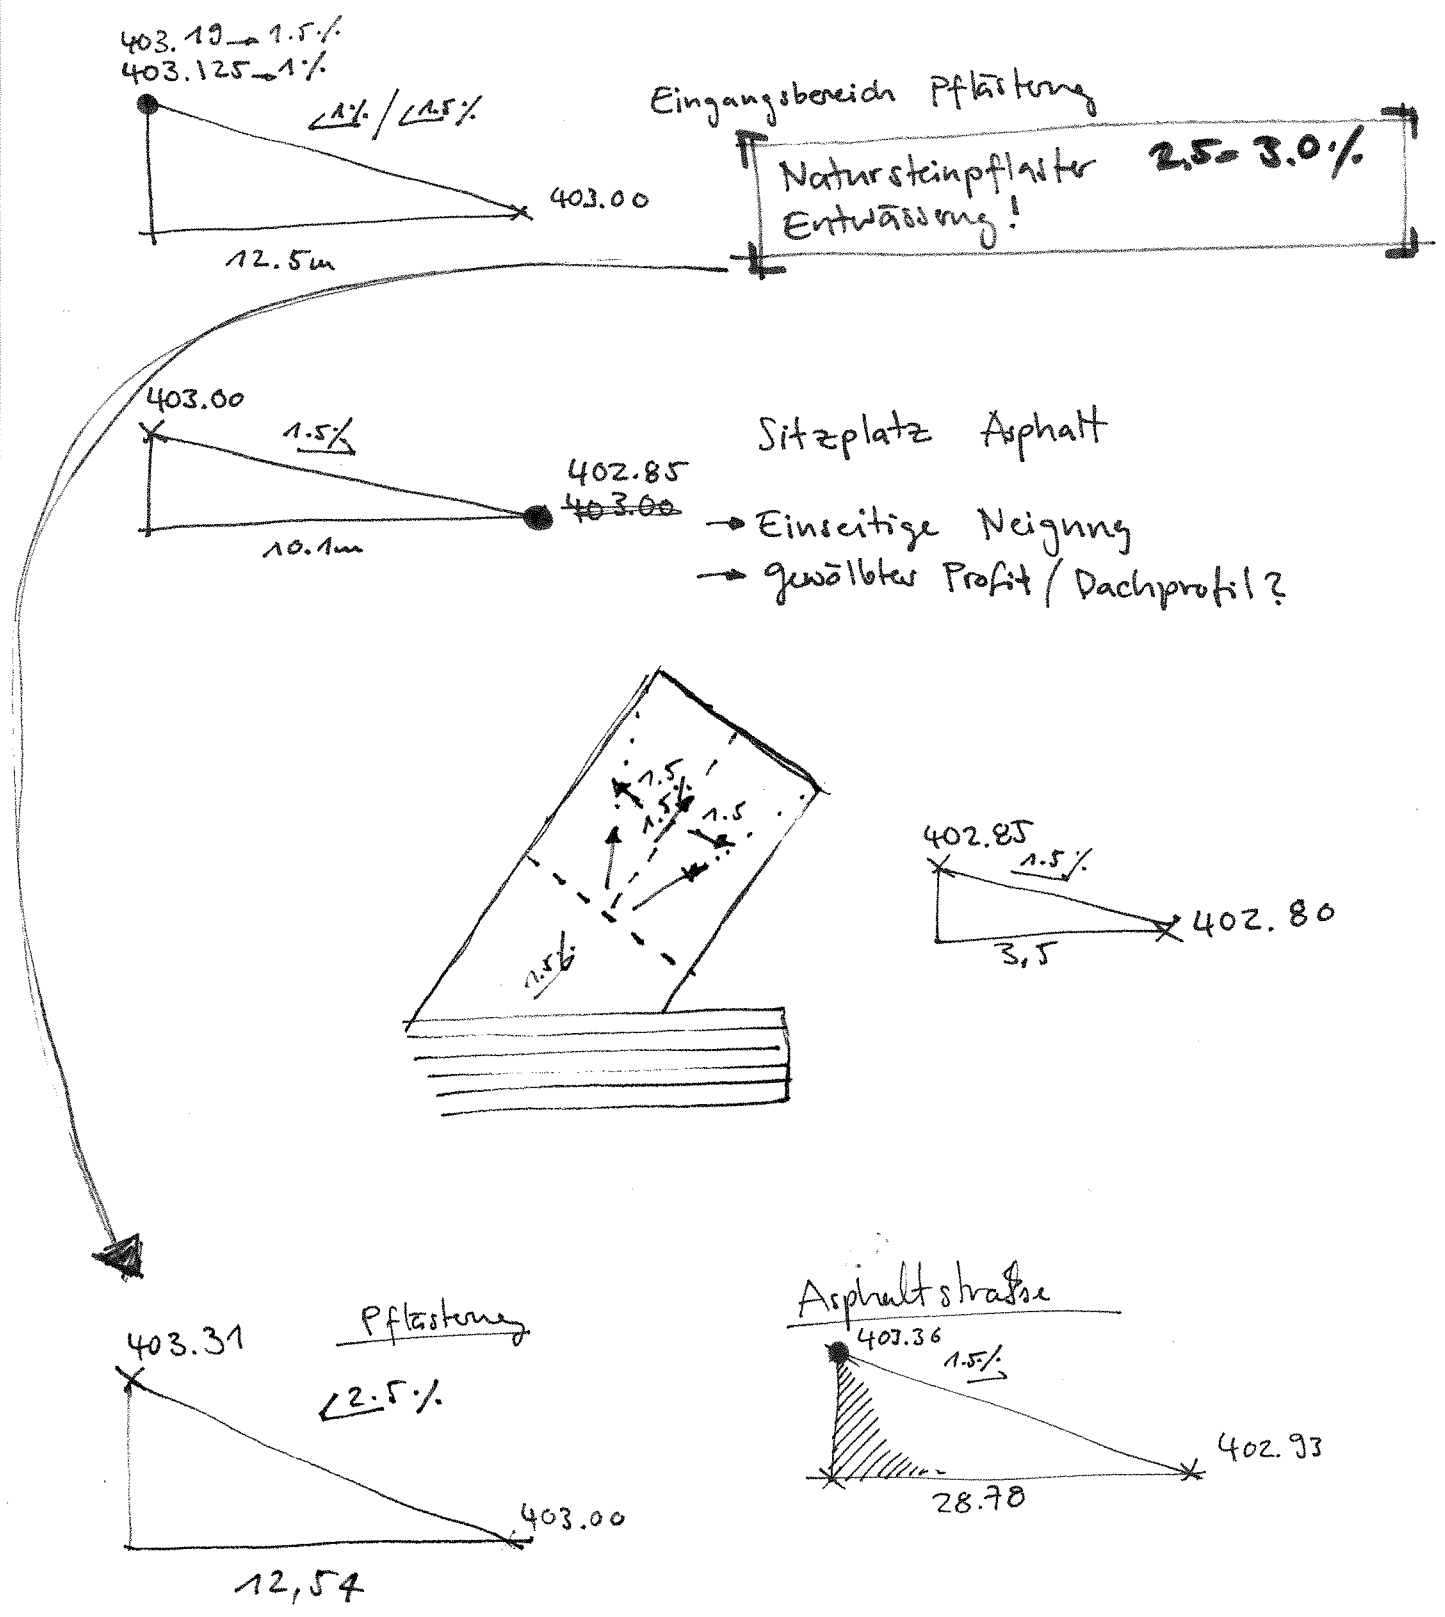 403.19→1.5%
403.125→1%
1% / 1.5%
403.00
12.5m
Eingangsbereich Pflästerung
Natursteinpflaster 2,5-3.0%
Entwässerung!
403.00
1.5%
402.85
403.00
10.1m
Sitzplatz Asphalt
→ Einseitige Neigung
→ gewölbter Profil / Dachprofil?
1.5
1.5%
1.5
1.5%
402.85
1.5%
402.80
3,5
403.31
Pflästerung
2.5%
403.00
12,54
Asphaltstraße
403.36
1.5%
402.93
28.78